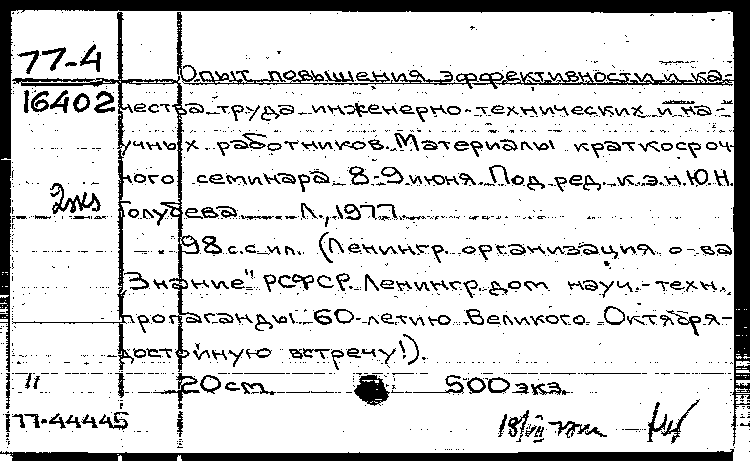 77-4
Опыт повышения эффективности и ка-
16402
чества труда инженерно-технических и на-
учных работников. Материалы краткосроч
ного семинара 8-9 июня. Под ред. к.э.н. Ю.Н.
2экз
Голубева Л., 1977.
98 с. с ил. (Ленингр. организация о-ва
"Знание" РСФСР. Ленингр. дом науч.-техн.
пропаганды. 60-летию Великого Октября-
достойную встречу!).
11
20 см. 500 экз.
77-44445
18/VII